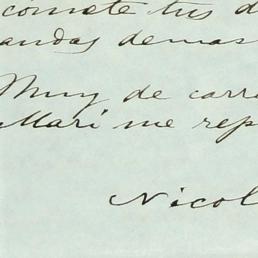 cómete tus d
andas demas
Muy de carr
Mari me rep
Nicol